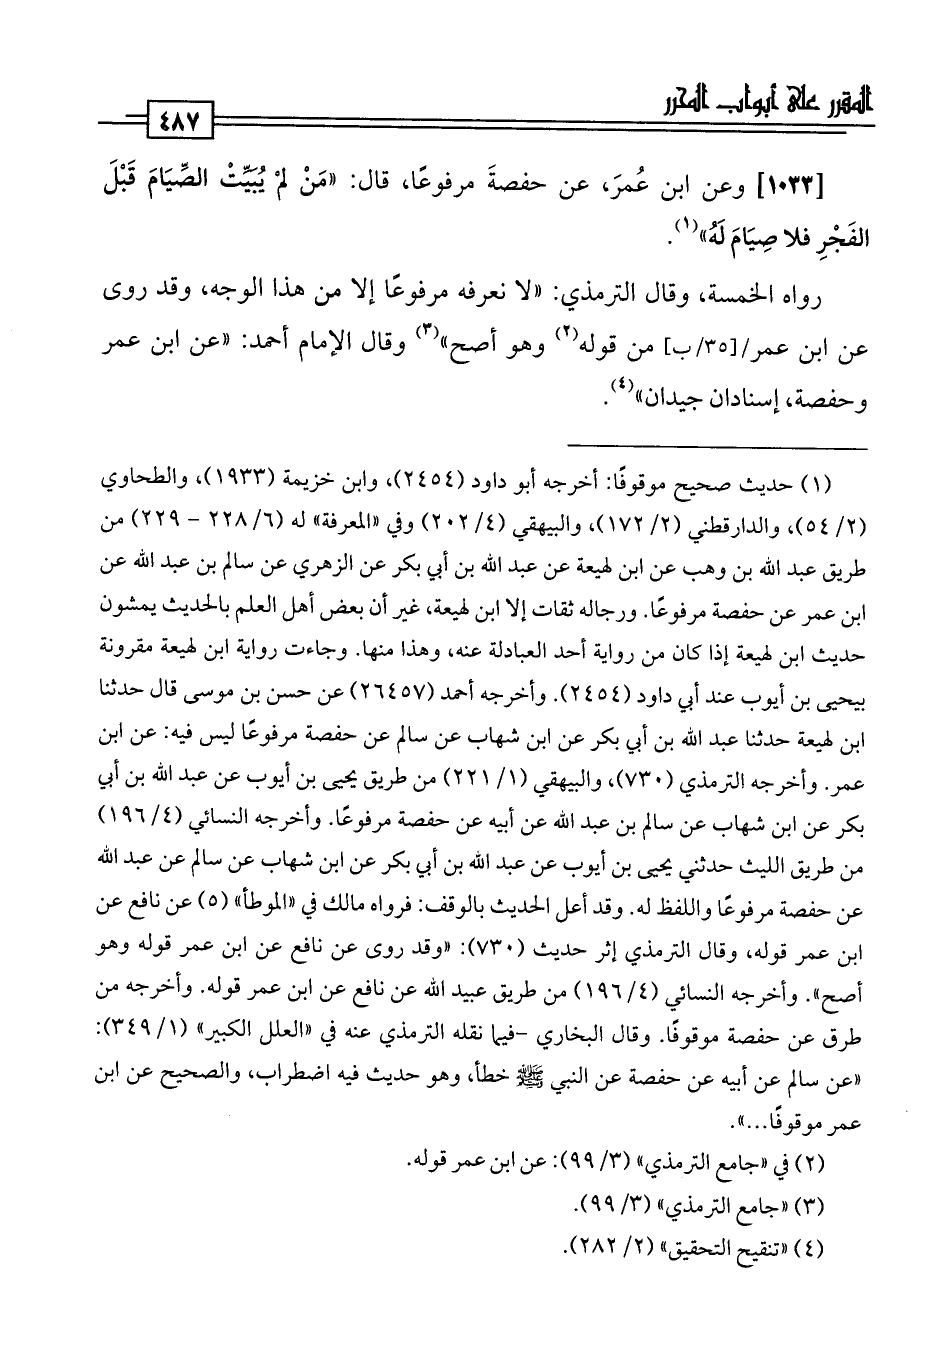 المقرر على أبواب المحرر
٤٨٧
[١٠٣٣] وعن ابن عُمرَ، عن حفصةَ مرفوعًا، قال: «مَنْ لمْ يُبَيِّتْ الصِّيَامَ قَبْلَ
الفَجْرِ فلا صِيَامَ لَهُ»(١).
رواه الخمسة، وقال الترمذي: «لا نعرفه مرفوعًا إلا من هذا الوجه، وقد روى
عن ابن عمر/[٣٥/ب] من قوله(٢) وهو أصح»(٣) وقال الإمام أحمد: «عن ابن عمر
وحفصة، إسنادان جيدان»(٤).
(١) حديث صحيح موقوفًا: أخرجه أبو داود (٢٤٥٤)، وابن خزيمة (١٩٣٣)، والطحاوي
(٢/ ٥٤)، والدارقطني (٢/ ١٧٢)، والبيهقي (٤/ ٢٠٢) وفي «المعرفة» له (٦/ ٢٢٨ - ٢٢٩) من
طريق عبد الله بن وهب عن ابن لهيعة عن عبد الله بن أبي بكر عن الزهري عن سالم بن عبد الله عن
ابن عمر عن حفصة مرفوعًا. ورجاله ثقات إلا ابن لهيعة، غير أن بعض أهل العلم بالحديث يمشون
حديث ابن لهيعة إذا كان من رواية أحد العبادلة عنه، وهذا منها. وجاءت رواية ابن لهيعة مقرونة
بيحيى بن أيوب عند أبي داود (٢٤٥٤). وأخرجه أحمد (٢٦٤٥٧) عن حسن بن موسى قال حدثنا
ابن لهيعة حدثنا عبد الله بن أبي بكر عن ابن شهاب عن سالم عن حفصة مرفوعًا ليس فيه: عن ابن
عمر. وأخرجه الترمذي (٧٣٠)، والبيهقي (١/ ٢٢١) من طريق يحيى بن أيوب عن عبد الله بن أبي
بكر عن ابن شهاب عن سالم بن عبد الله عن أبيه عن حفصة مرفوعًا. وأخرجه النسائي (٤/ ١٩٦)
من طريق الليث حدثني يحيى بن أيوب عن عبد الله بن أبي بكر عن ابن شهاب عن سالم عن عبد الله
عن حفصة مرفوعًا واللفظ له. وقد أعل الحديث بالوقف: فرواه مالك في «الموطأ» (٥) عن نافع عن
ابن عمر قوله، وقال الترمذي إثر حديث (٧٣٠): «وقد روى عن نافع عن ابن عمر قوله وهو
أصح». وأخرجه النسائي (٤/ ١٩٦) من طريق عبيد الله عن نافع عن ابن عمر قوله. وأخرجه من
طرق عن حفصة موقوفًا. وقال البخاري -فيما نقله الترمذي عنه في «العلل الكبير» (١/ ٣٤٩):
«عن سالم عن أبيه عن حفصة عن النبي ﷺ خطأ، وهو حديث فيه اضطراب، والصحيح عن ابن
عمر موقوفًا...».
(٢) في «جامع الترمذي» (٣/ ٩٩): عن ابن عمر قوله.
(٣) «جامع الترمذي» (٣/ ٩٩).
(٤) «تنقيح التحقيق» (٢/ ٢٨٢).